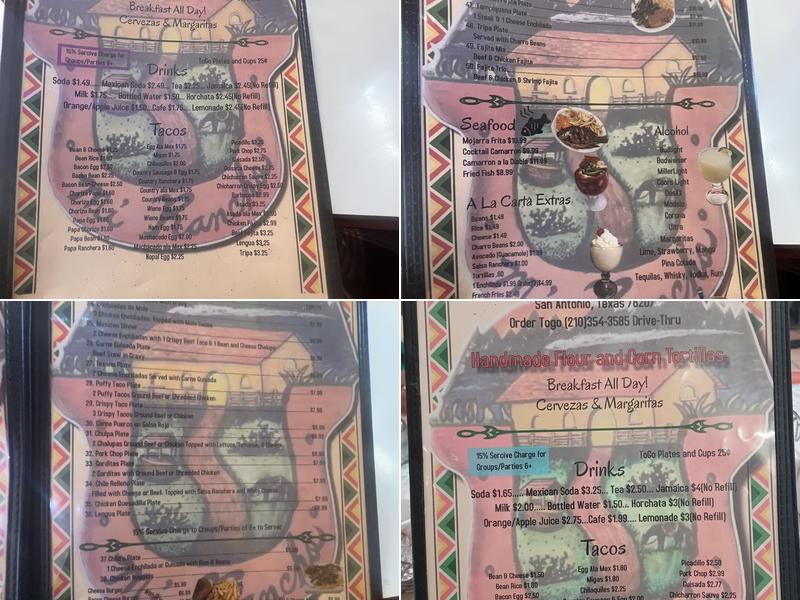 Breakfast All Day!
Cervezas & Margaritas
15% Sercive Charge for
Groups/Parties 6+
ToGo Plates and Cups 25¢
Drinks
Soda $1.49.... Mexican Soda $2.49... Tea $2.25... Jamaica $2.45(No Refill)
Milk $1.75.... Bottled Water $1.50... Horchata $2.45(No Refill)
Orange/Apple Juice $1.50...Cafe $1.75.... Lemonade $2.45(No Refill)
Tacos
Bean & Cheese $1.25
Bean Rice $1.60
Bacon Egg $2.50
Bacon Bean $2.25
Bacon Bean Cheese $2.50
Chorizo Papa $1.60
Chorizo Egg $1.60
Chorizo Bean $1.60
Papa Egg $1.60
Papa Chorizo $1.60
Papa Bean $1.60
Papa Ranchera $1.60
Egg Ala Mex $1.75
Migas $1.75
Chilaquiles $2.00
Country Sausage & Egg $1.75
Country Ranchera $1.75
Country ala Mex $1.75
Country Beans $1.75
Wiene Egg $1.75
Wiene Beans $1.75
Ham Egg $1.75
Machacado Egg $2.00
Machacado ala Mex $2.25
Nopal Egg $2.25
Picadillo $2.25
Pork Chop $2.75
Guisada $2.50
Guisada Cheese $2.75
Chicharron Sauce $2.25
Chicharron Crispy Egg $2.50
Barbacoa $2.95
Asada $3.25
Asada ala Mex $3.50
Chicken Fajita $2.99
Beef Fajita $3.25
Lengua $3.25
Tripa $3.25
47. Tampiquena Plate
1 Steak & 1 Cheese Enchilada
48. Tripa Plate
Served with Charro Beans
49. Fajita Mix
Beef & Chicken Fajita
50. Fajita Trio
Beef & Chicken & Shrimp Fajita
Seafood
Mojarra Frita $10.99
Cocktail Camaron $9.99
Camaron a la Diabla $11.99
Fried Fish $8.99
A La Carta Extras
Beans $1.49
Rice $1.49
Cheese $1.49
Charro Beans $2.00
Avocado (Guacamole) $1.99
Salsa Ranchera $1.00
Tortillas .60
1 Enchilada $1.99 Order(3)$4.99
French Fries $2.49
Alcohol
Budlight
Budweiser
MillerLight
Coors Light
DosXX
Modelo
Corona
Ultra
Margaritas
Lime, Strawberry, Mango
Pina Colada
Tequilas, Whisky, Vodka, Rum
3 Enchiladas, Topped with Mole Sauce
25. Mexican Dinner
2 Cheese Enchiladas with 1 Crispy Beef Taco & 1 Bean and Cheese Chalupa
26. Carne Guisada Plate
Beef Stew in Gravy
27. Texano Plate
2 Cheese Enchiladas Served with Carne Guisada
28. Puffy Taco Plate
2 Puffy Tacos Ground Beef or Shredded Chicken
29. Crispy Taco Plate
3 Crispy Tacos Ground Beef or Chicken
30. Carne Puerco en Salsa Rojo
31. Chulpa Plate
2 Chalupas Ground Beef or Chicken Topped with Lettuce, Tomatoe, & Cheese
32. Pork Chop Plate
33. Gorditas Plate
2 Gorditas with Ground Beef or Shredded Chicken
34. Chile Relleno Plate
Filled with Cheese or Beef. Topped with Salsa Ranchera and White Cheese
35. Chicken Quesadilla Plate
36. Lengua Plate
15% Service Charge to Groups/Parties of 6+ to Server
37. Child's Plate
1 Cheese Enchilada or Guisada with Rice & Beans
38. Chicken Nuggets
Cheese Burger
San Antonio, Texas 78207
Order Togo (210)354-3585 Drive-Thru
Handmade Flour and Corn Tortillas
Breakfast All Day!
Cervezas & Margaritas
15% Sercive Charge for
Groups/Parties 6+
ToGo Plates and Cups 25¢
Drinks
Soda $1.65..... Mexican Soda $3.25... Tea $2.50... Jamaica $4(No Refill)
Milk $2.00..... Bottled Water $1.50... Horchata $3(No Refill)
Orange/Apple Juice $2.75...Cafe $1.99.... Lemonade $3(No Refill)
Tacos
Bean & Cheese $1.50
Bean Rice $1.80
Bacon Egg $2.50
Egg Ala Mex $1.80
Migas $1.80
Chilaquiles $2.25
Country Sausage & Egg $2.00
Picadillo $2.50
Pork Chop $2.99
Guisada $2.77
Chicharron Sauce $2.25